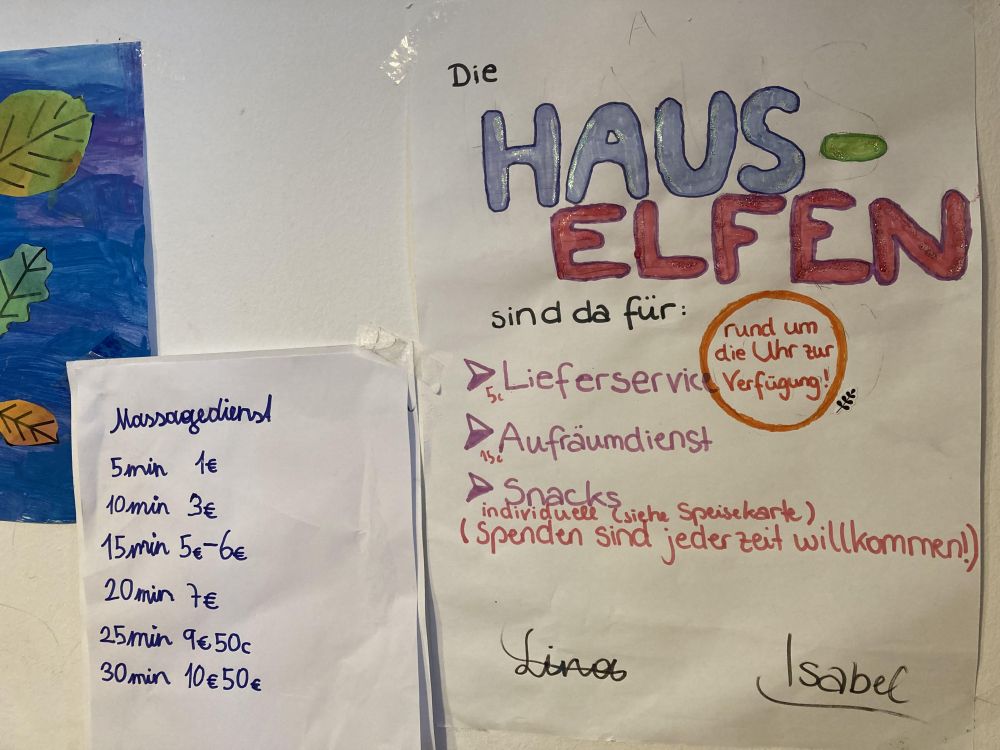 Die
HAUS-
ELFEN
sind da für:
rund um
die Uhr zur
Verfügung!
Lieferservice
5c
Aufräumdienst
15c
Snacks
individuell (siehe Speisekarte)
(Spenden sind jederzeit willkommen!)
Lina
Isabel
Massagedienst
5min 1€
10min 3€
15min 5€-6€
20min 7€
25min 9€50c
30min 10€50€